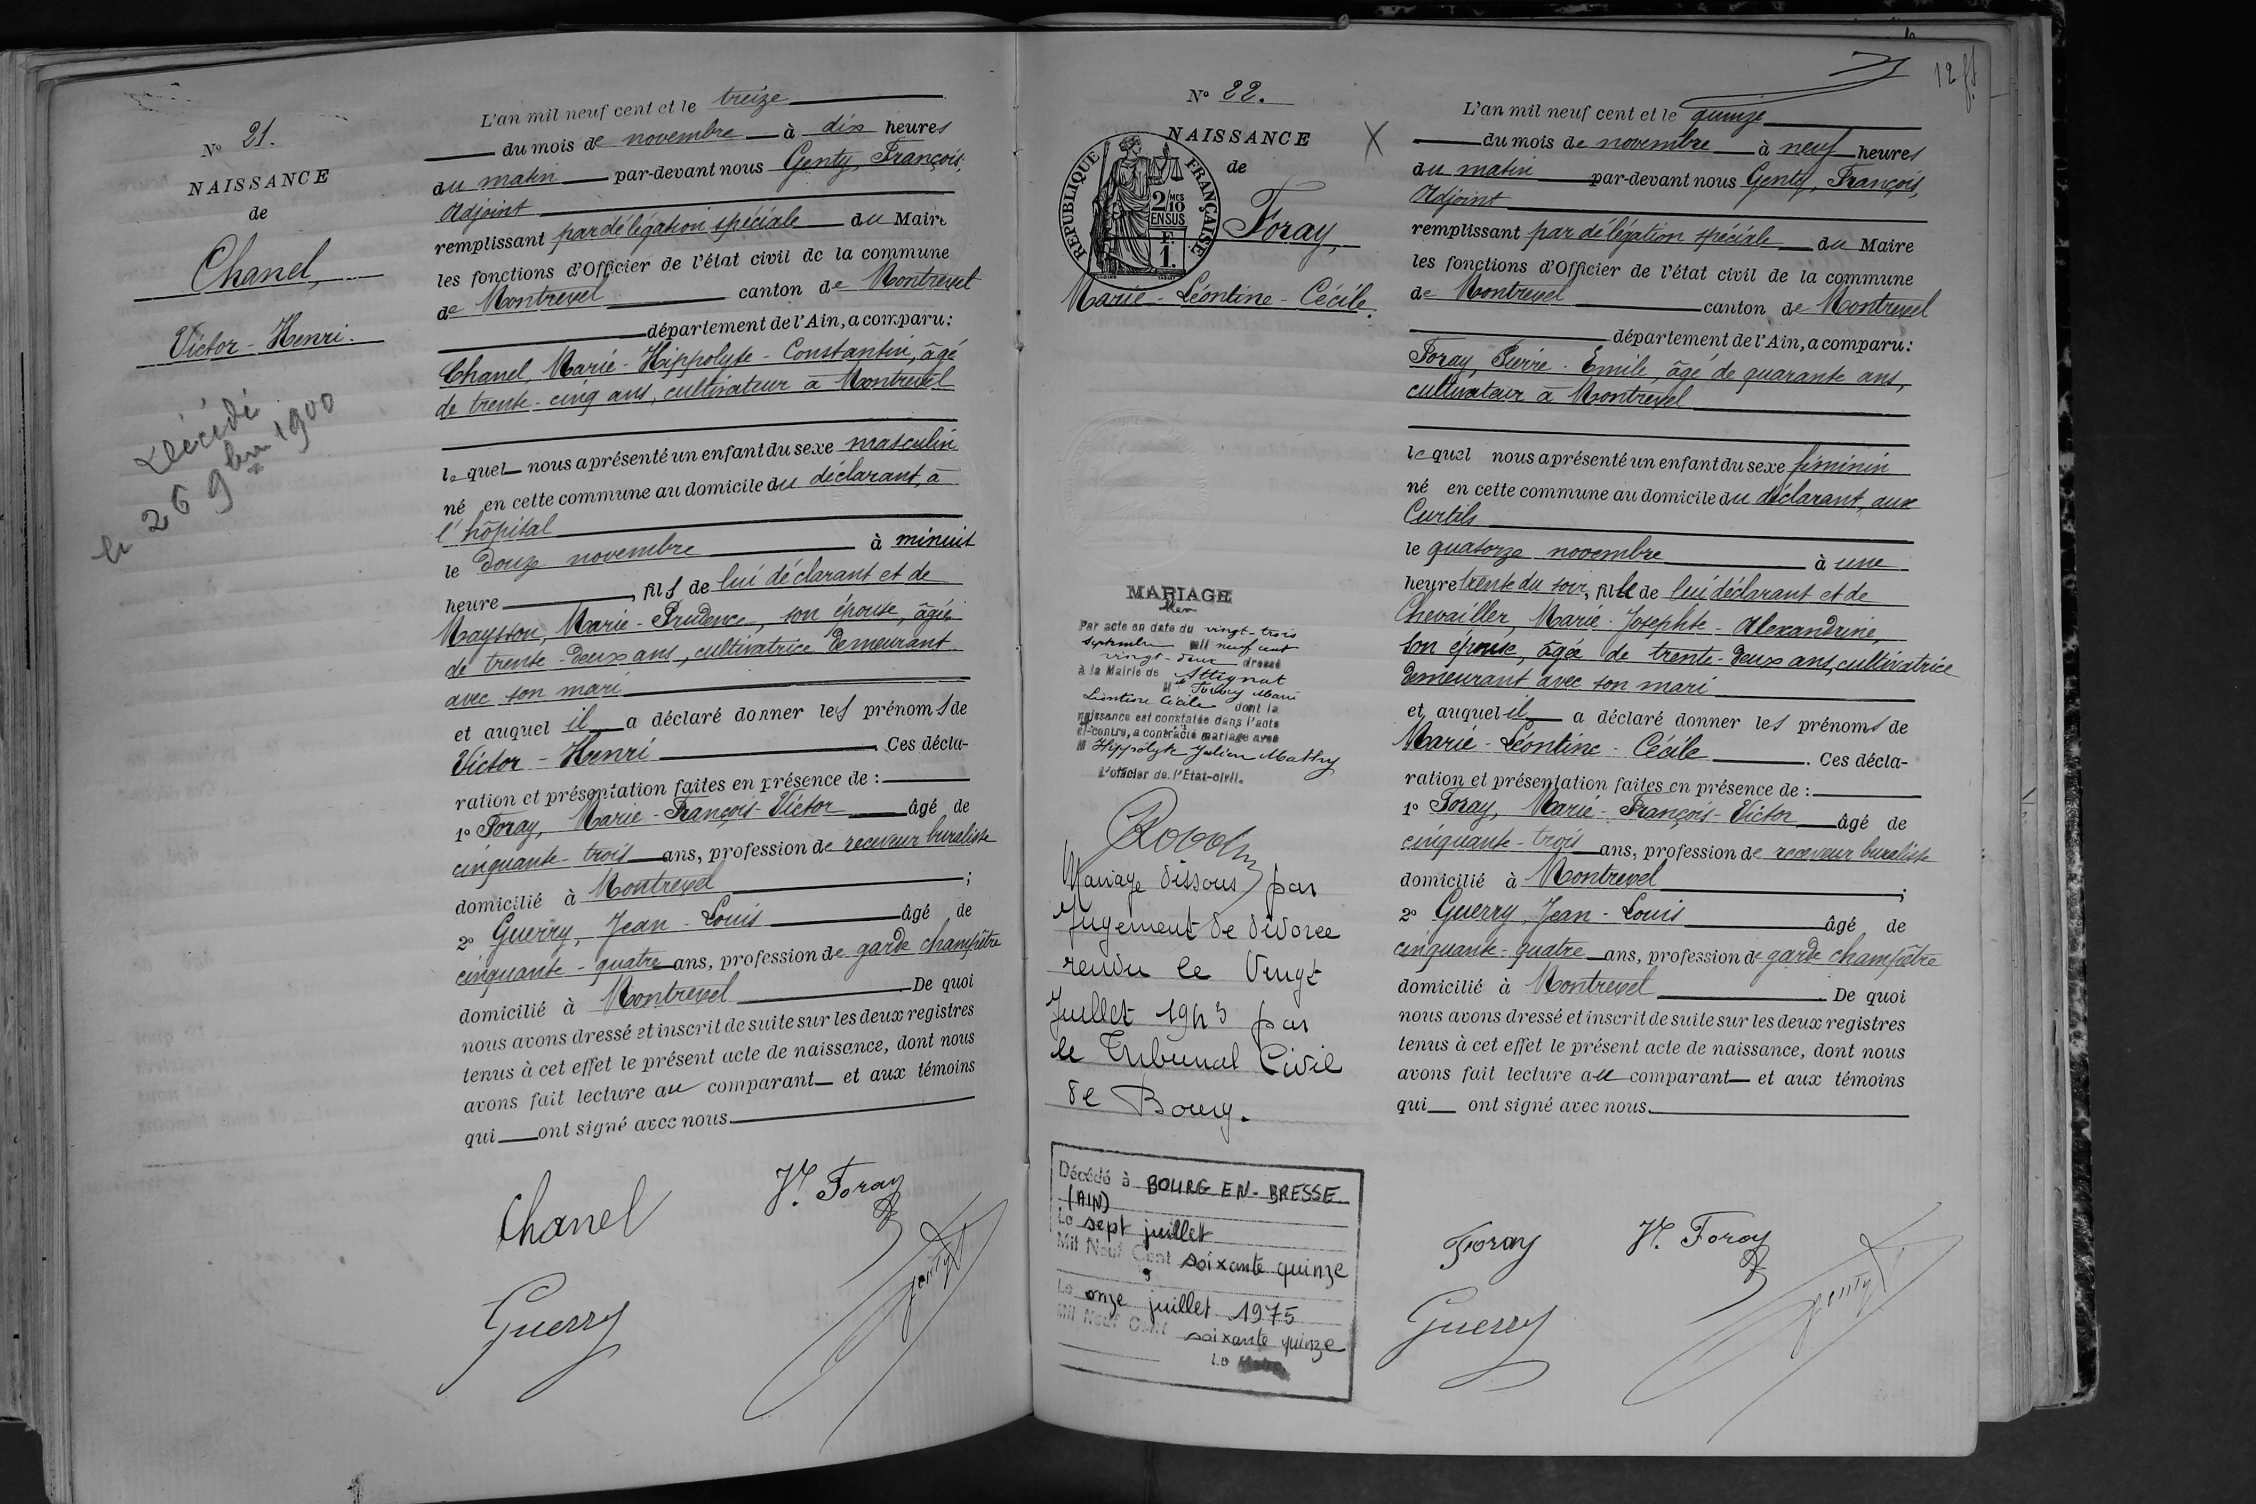 Nº 21.
NAISSANCE
de
Chanel,
Victor - Henri.
Décédé
le 26 9bre 1900
L'an mil neuf cent et le treize
du mois de novembre à dix heures
du matin par-devant nous Genty, François,
Adjoint
remplissant par délégation spéciale du Maire
les fonctions d'Officier de l'état civil de la commune
de Montrevel canton de Montrevel
département de l'Ain, a comparu:
Chanel, Marie - Hippolyte - Constantin, âgé
de trente - cinq ans, cultivateur à Montrevel
lequel nous a présenté un enfant du sexe masculin
né en cette commune au domicile du déclarant, à
l'hôpital
le douze novembre à minuit
heure, fils de lui déclarant et de
Mayssou, Marie - Prudence, son épouse, âgée
de trente - deux ans, cultivatrice demeurant
avec son mari
et auquel il a déclaré donner les prénoms de
Victor - Henri. Ces décla-
ration et présentation faites en présence de :
1º Foray, Marie - François - Victor âgé de
cinquante - trois ans, profession de receveur buraliste
domicilié à Montrevel ;
2º Guerry, Jean - Louis âgé de
cinquante - quatre ans, profession de garde champêtre
domicilié à Montrevel. De quoi
nous avons dressé et inscrit de suite sur les deux registres
tenus à cet effet le présent acte de naissance, dont nous
avons fait lecture au comparant et aux témoins
qui ont signé avec nous.
Chanel Vr. Foray
Guerry Genty
12
Nº 22.
NAISSANCE
de
RÉPUBLIQUE FRANÇAISE
2/10 MES
EN SUS
F.
1.
Foray,
Marie - Léontine - Cécile.
MARIAGE
Par acte en date du vingt-trois
septembre mil neuf cent
vingt-deux dressé
à la Mairie de Attignat
M Foray Marie
Léontine Cécile dont la
naissance est constatée dans l'acte
ci-contre, a contracté mariage avec
M Hippolyte Julien Mathy
L'officier de l'État-civil.
Mariage dissous par
Jugement de divorce
rendu le Vingt
Juillet 1943 par
le Tribunal Civil
de Bourg.
Décédé à BOURG EN-BRESSE
(AIN)
Le sept juillet
Mil Neuf Cent soixante quinze
Le onze juillet 1975
Mil Neuf Cent soixante quinze
Le
L'an mil neuf cent et le quinze
du mois de novembre à neuf heures
du matin par-devant nous Genty, François,
Adjoint
remplissant par délégation spéciale du Maire
les fonctions d'Officier de l'état civil de la commune
de Montrevel canton de Montrevel
département de l'Ain, a comparu:
Foray, Pierre - Emile, âgé de quarante ans,
cultivateur à Montrevel
lequel nous a présenté un enfant du sexe féminin
né en cette commune au domicile du déclarant, aux
Curtils
le quatorze novembre à une
heure trente du soir, fille de lui déclarant et de
Chevailler, Marie - Josephte - Alexandrine,
son épouse, âgée de trente-deux ans, cultivatrice
demeurant avec son mari
et auquel il a déclaré donner les prénoms de
Marie - Léontine - Cécile. Ces décla-
ration et présentation faites en présence de :
1º Foray, Marie - François - Victor âgé de
cinquante - trois ans, profession de receveur buraliste
domicilié à Montrevel ;
2º Guerry, Jean - Louis âgé de
cinquante - quatre ans, profession de garde champêtre
domicilié à Montrevel. De quoi
nous avons dressé et inscrit de suite sur les deux registres
tenus à cet effet le présent acte de naissance, dont nous
avons fait lecture au comparant et aux témoins
qui ont signé avec nous.
Foray Vr. Foray
Guerry Genty